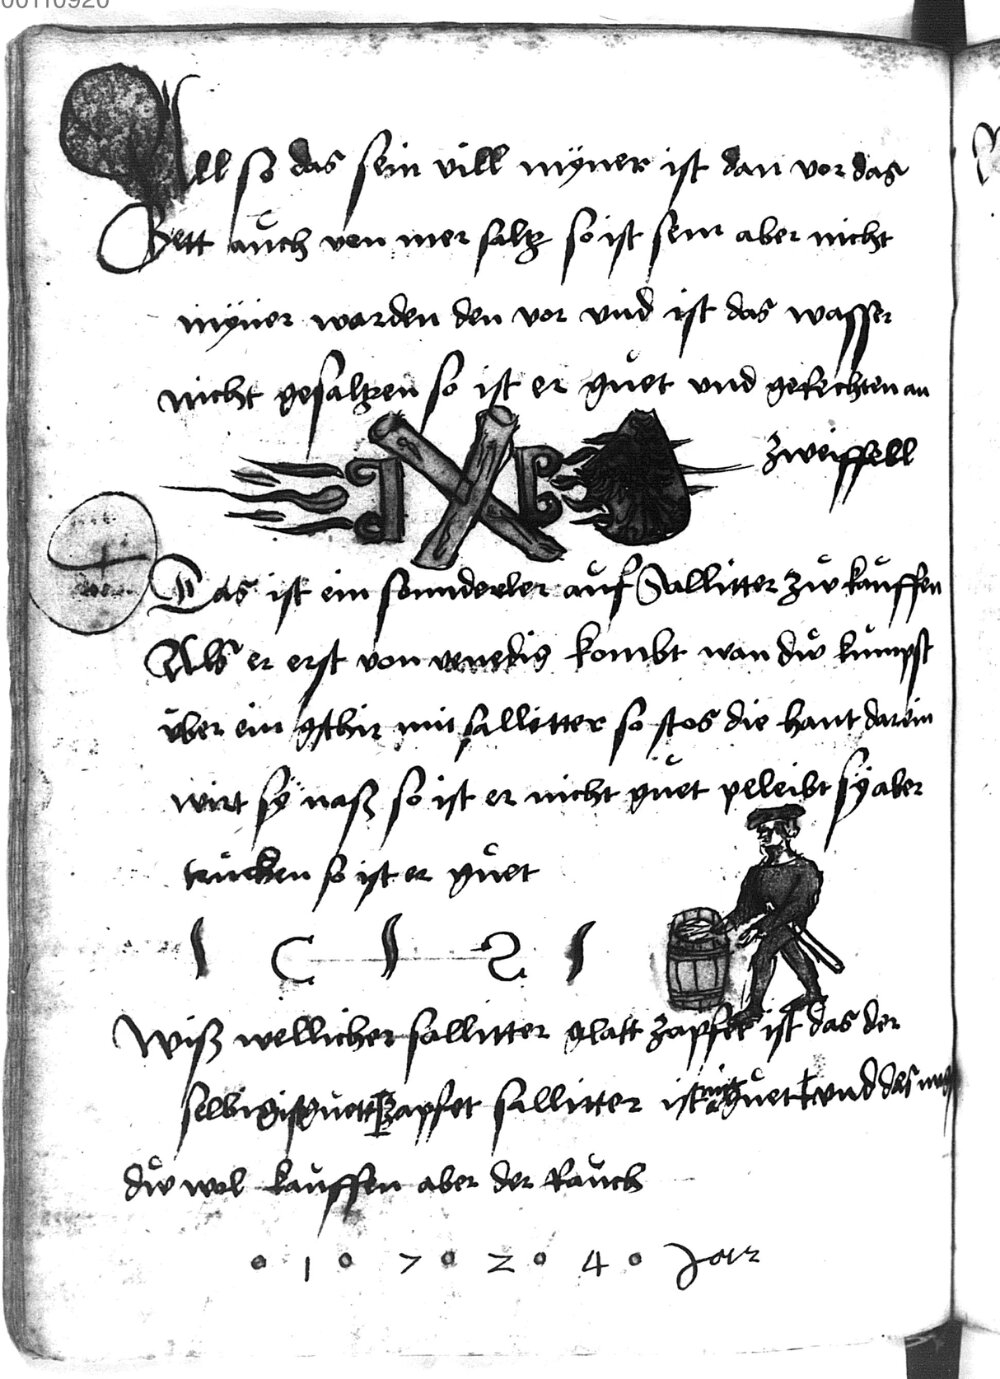 00110920
All so das sein vill myner ist dan vor das
Gett auch von mer saltz so ist sein aber nicht
myner worden den vor und ist das wasser
nicht gesaltzen so ist er guet und gerechten an
zweiffell
Das ist ein sonnderler auf Sallitter zů kauffen
Als er erst von venedig kombt wan dů kumpst
über ein mit sallitter so stos die hant darein
wirt sy naß so ist er nicht guet peleibt sy aber
trucken so ist er guet
Wiß wellicher sallitter glatt zapfet ist das der
selbig ist guett zapfet sallitter ist guet und das
dů wol kauffen aber der Rauch
1 7 2 4 Jar